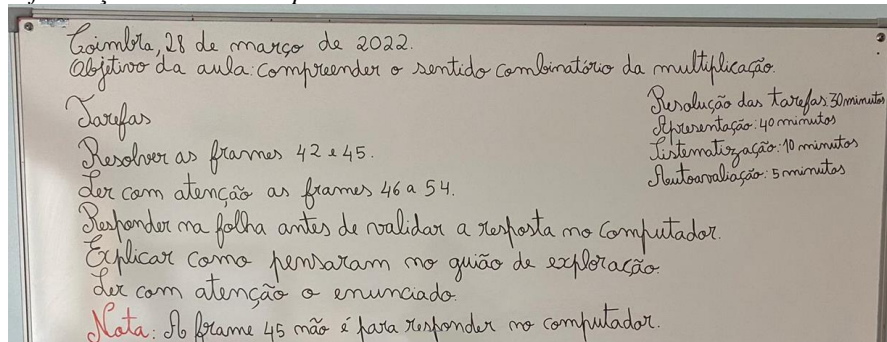 Coimbra, 28 de março de 2022.
Objetivo da aula: compreender o sentido combinatório da multiplicação.
Tarefas
Resolver as frames 42 e 45.
Ler com atenção as frames 46 a 54.
Responder na folha antes de validar a resposta no computador.
Explicar como pensaram no guião de exploração.
Ler com atenção o enunciado.
Nota: A frame 45 não é para responder no computador.
Resolução das tarefas: 30 minutos
Apresentação: 40 minutos
Sistematização: 10 minutos
Autoavaliação: 5 minutos